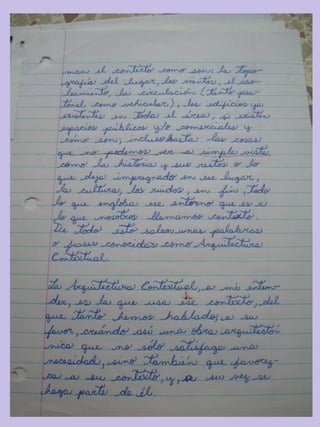 man el contexto como son: la topo-
grafía del lugar, los vientos, el aso-
leamiento, la circulación (tanto pea-
tonal como vehicular), los edificios ya
existentes en toda el área, si existen
espacios públicos y/o comerciales y
cómo son; incluso hasta las cosas
que no podemos ver a simple vista
como la historia y sus restos o lo
que deja impregnado en ese lugar,
la cultura, los ruidos, en fin, todo
lo que engloba ese entorno que es a
lo que nosotros llamamos contexto.
De todo esto salen unas palabras
o frases conocidas como Arquitectura
Contextual.
La Arquitectura Contextual, a mi enten-
der, es la que usa ese contexto, del
que tanto hemos hablado, a su
favor, creándo así una obra arquitectó-
nica que no sólo satisfaga una
necesidad, sino también que favorez-
ca a su contexto, y, a su vez se
haga parte de él.